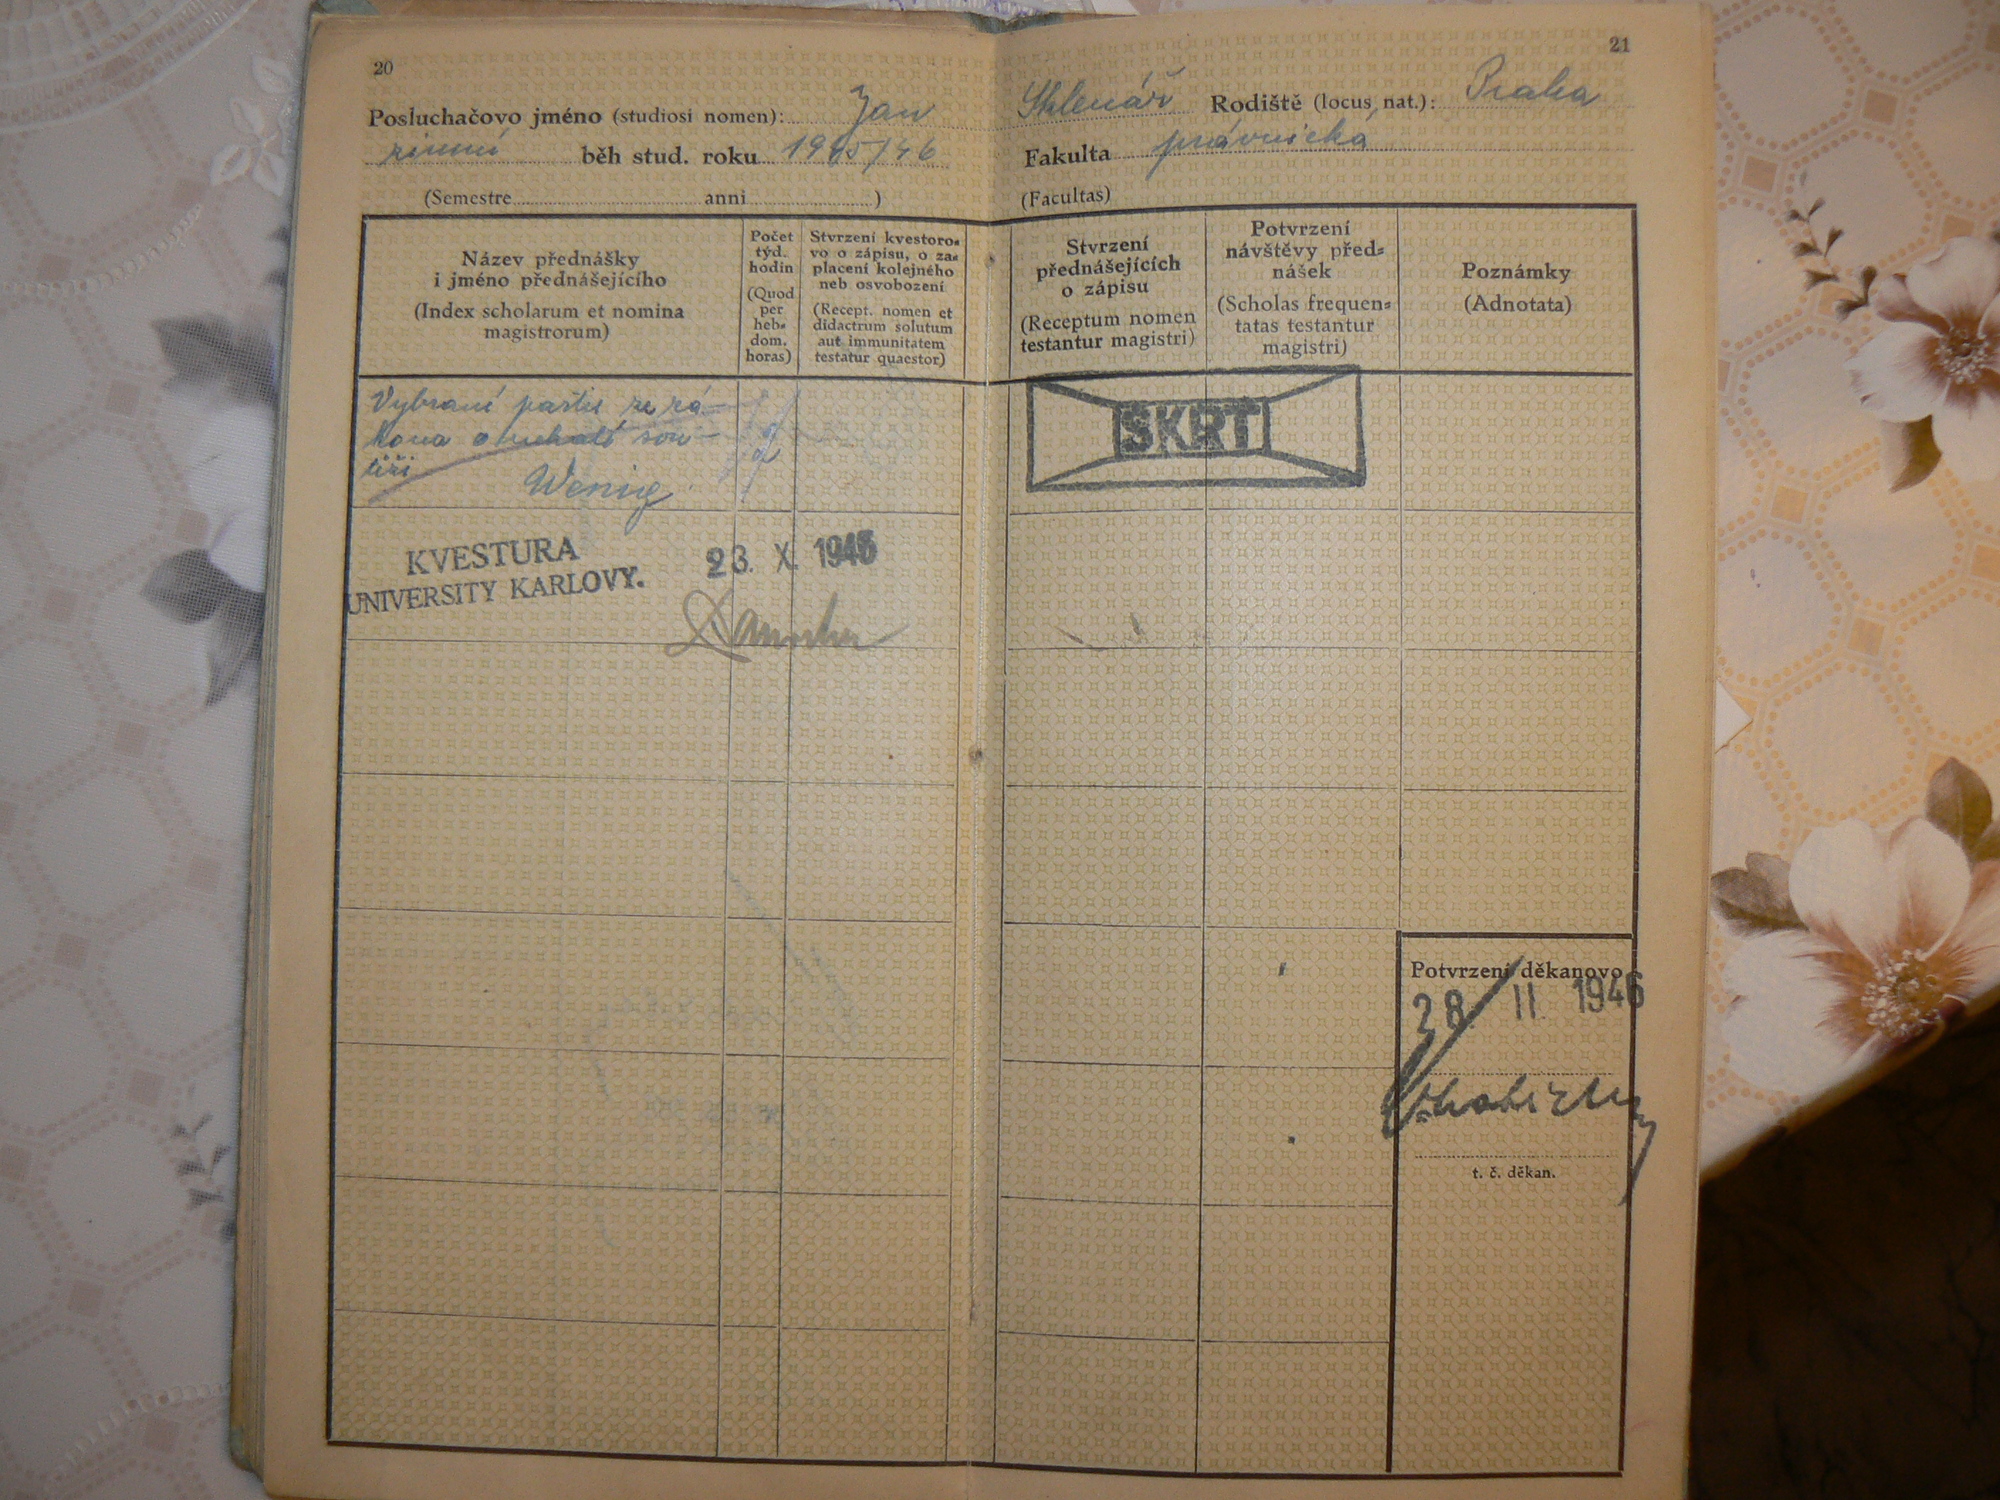 20
21
Posluchačovo jméno (studiosi nomen): Jan Sklenář Rodiště (locus nat.): Praha
zimní běh stud. roku 1945/46 Fakulta právnická
(Semestre anni ) (Facultas)
Název přednášky
i jméno přednášejícího
(Index scholarum et nomina
magistrorum)
Počet
týd.
hodin
(Quod
per
heb=
dom.
horas)
Stvrzení kvestoro=
vo o zápisu, o za=
placení kolejného
neb osvobození
(Recept. nomen et
didactrum solutum
aut immunitatem
testatur quaestor)
Stvrzení
přednášejících
o zápisu
(Receptum nomen
testantur magistri)
Potvrzení
návštěvy před=
nášek
(Scholas frequen=
tatas testantur
magistri)
Poznámky
(Adnotata)
Vybrané partie ze zá-
kona o nekalé sou-
těži
Wenig
2
ŠKRT
KVESTURA
UNIVERSITY KARLOVY.
23. X. 1945
Potvrzení děkanovo
28. II. 1946
t. č. děkan.